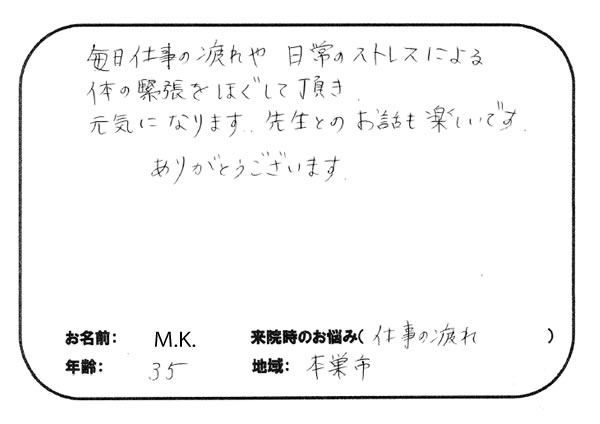 毎日仕事の疲れや 日常のストレスによる
体の緊張をほぐして頂き
元気になります. 先生とのお話も楽しいです.
ありがとうございます.
お名前: M.K. 来院時のお悩み( 仕事の疲れ )
年齢: 35 地域: 本巣市